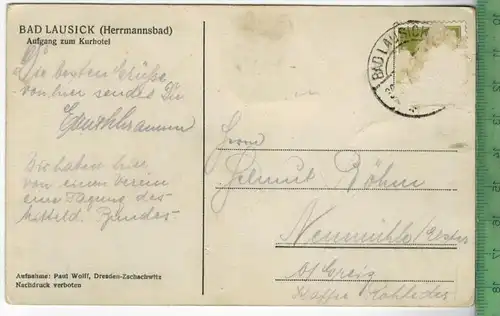 BAD LAUSICK (Herrmannsbad)
Aufgang zum Kurhotel
Die besten Grüße
von hier sendet Dir
Wir haben hier
von einem Verein
eine Tagung des
Mitteld. Bundes
Aufnahme: Paul Wolff, Dresden-Zschachwitz
Nachdruck verboten
BAD LAUSICK
Herrn
Helmut Böhm
Neumühle/Elster
b/Greiz